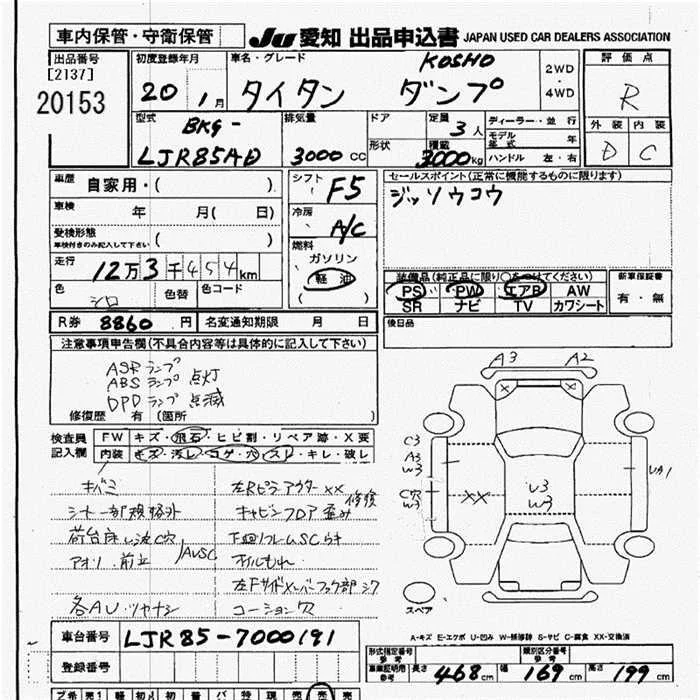 車内保管・守衛保管
JU 愛知 出品申込書 JAPAN USED CAR DEALERS ASSOCIATION
出品番号
[2137]
20153
初度登録年月
20 年 1月
車名・グレード
KOSHO
タイタン ダンプ
2WD
・
4WD
評価点
R
外装 内装
D C
型式
BKG-
LJR85AD
排気量
3000cc
ドア
形状
定員
3人
積載
3000kg
ディーラー・並行
モデル 年式
ハンドル 左・右
車歴
自家用・( )
車検
年 月( 日)
受検形態
車検付きのみ記入して下さい ( )
走行
12万3千454km
色
シロ
色替
色コード
シフト
F5
冷房
A/C
燃料
ガソリン
軽油
( )
セールスポイント(正常に機能するものに限ります)
ジッソウコウ
装備品(純正品に限り○をつけてください)
PS PW エアB AW
SR ナビ TV カワシート
新車保証書
有・無
R券 8860円 名変通知期限 月 日
後日品
注意事項申告欄(不具合内容等は具体的に記入して下さい)
ASRランプ
ABSランプ 点灯
DPDランプ 点滅
修復歴 有(箇所 )
検査員
記入欄
FW キズ・飛石・ヒビ割・リペア跡・X要
内装 キズ・汚レ・コゲ・穴・スレ・キレ・破レ
キバミ
左RピラアウターXX
修復
キャビンフロア歪み
アオリ
オイルもれ
コーション穴
A3 A2
C3
A3
W3
C穴
W3
XX
U3
W3
UA1
スペア
A-キズ E-エクボ U-凹み W-補修跡 S-サビ C-腐食 XX-交換済
車台番号 LJR85-7000191
登録番号
形式指定番号
参考
類別区分番号
参考
車検証明
参考
長さ 468cm 幅 169cm 高さ 199cm